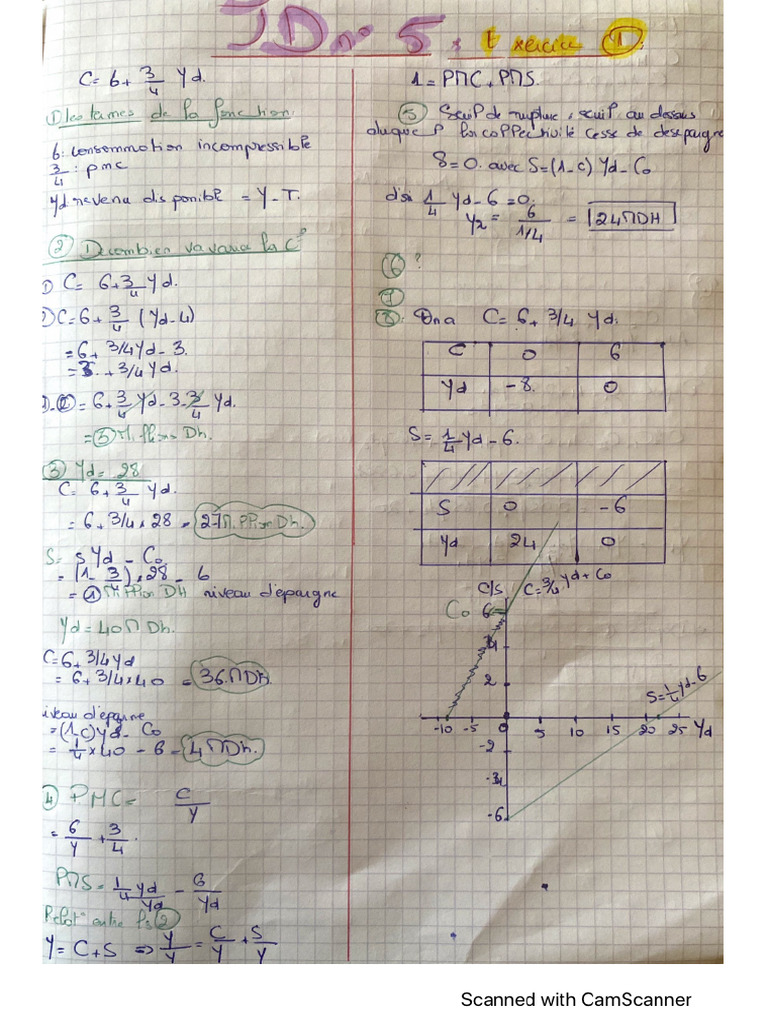 TD n° 5 : Exercice 1.
C = 6 + 3/4 Yd.
① les termes de la fonction
6 : consommation incompressible
3/4 : pmc
Yd revenu disponible = Y - T.
② De combien va varier la C°
① C = 6 + 3/4 Yd.
② C = 6 + 3/4 (Yd - 4)
= 6 + 3/4 Yd - 3.
= 3 + 3/4 Yd.
① - ② = 6 + 3/4 Yd - 3 - 3/4 Yd.
= ③ Millions Dh.
③ Yd = 28
C = 6 + 3/4 Yd.
= 6 + 3/4 × 28 = 27 Million Dh.
S = s Yd - Co
= (1 - 3/4) × 28 - 6
= ① Million DH niveau d'épargne
Yd = 40 M Dh.
C = 6 + 3/4 Yd
= 6 + 3/4 × 40 = 36 MDh
niveau d'épargne
= (1-c) Yd - Co
= 1/4 × 40 - 6 = 4 MDh.
④ PMC = C/Y
= 6/Y + 3/4.
PMS = 1/4 Yd/Yd - 6/Yd
Relat° entre les ②
Y = C + S ⇒ Y/Y = C/Y + S/Y
1 = PMC + PMS.
⑤ Seuil de rupture : seuil au dessous
duquel la collectivité cesse de
S = 0. avec S = (1-c) Yd - Co
1/4 Yd - 6 = 0.
= 6 / 1/4 = 24 MDH
⑥ ?
⑦
⑧ : On a C = 6 + 3/4 Yd.
C 0 6
Yd -8 0
S = 1/4 Yd - 6.
S 0 -6
Yd 24 0
C/S C = 3/4 Yd + Co
Co 6
4
2
S = 1/4 Yd - 6
-10 -5 0 5 10 15 20 25 Yd
-2
-6
Scanned with CamScanner